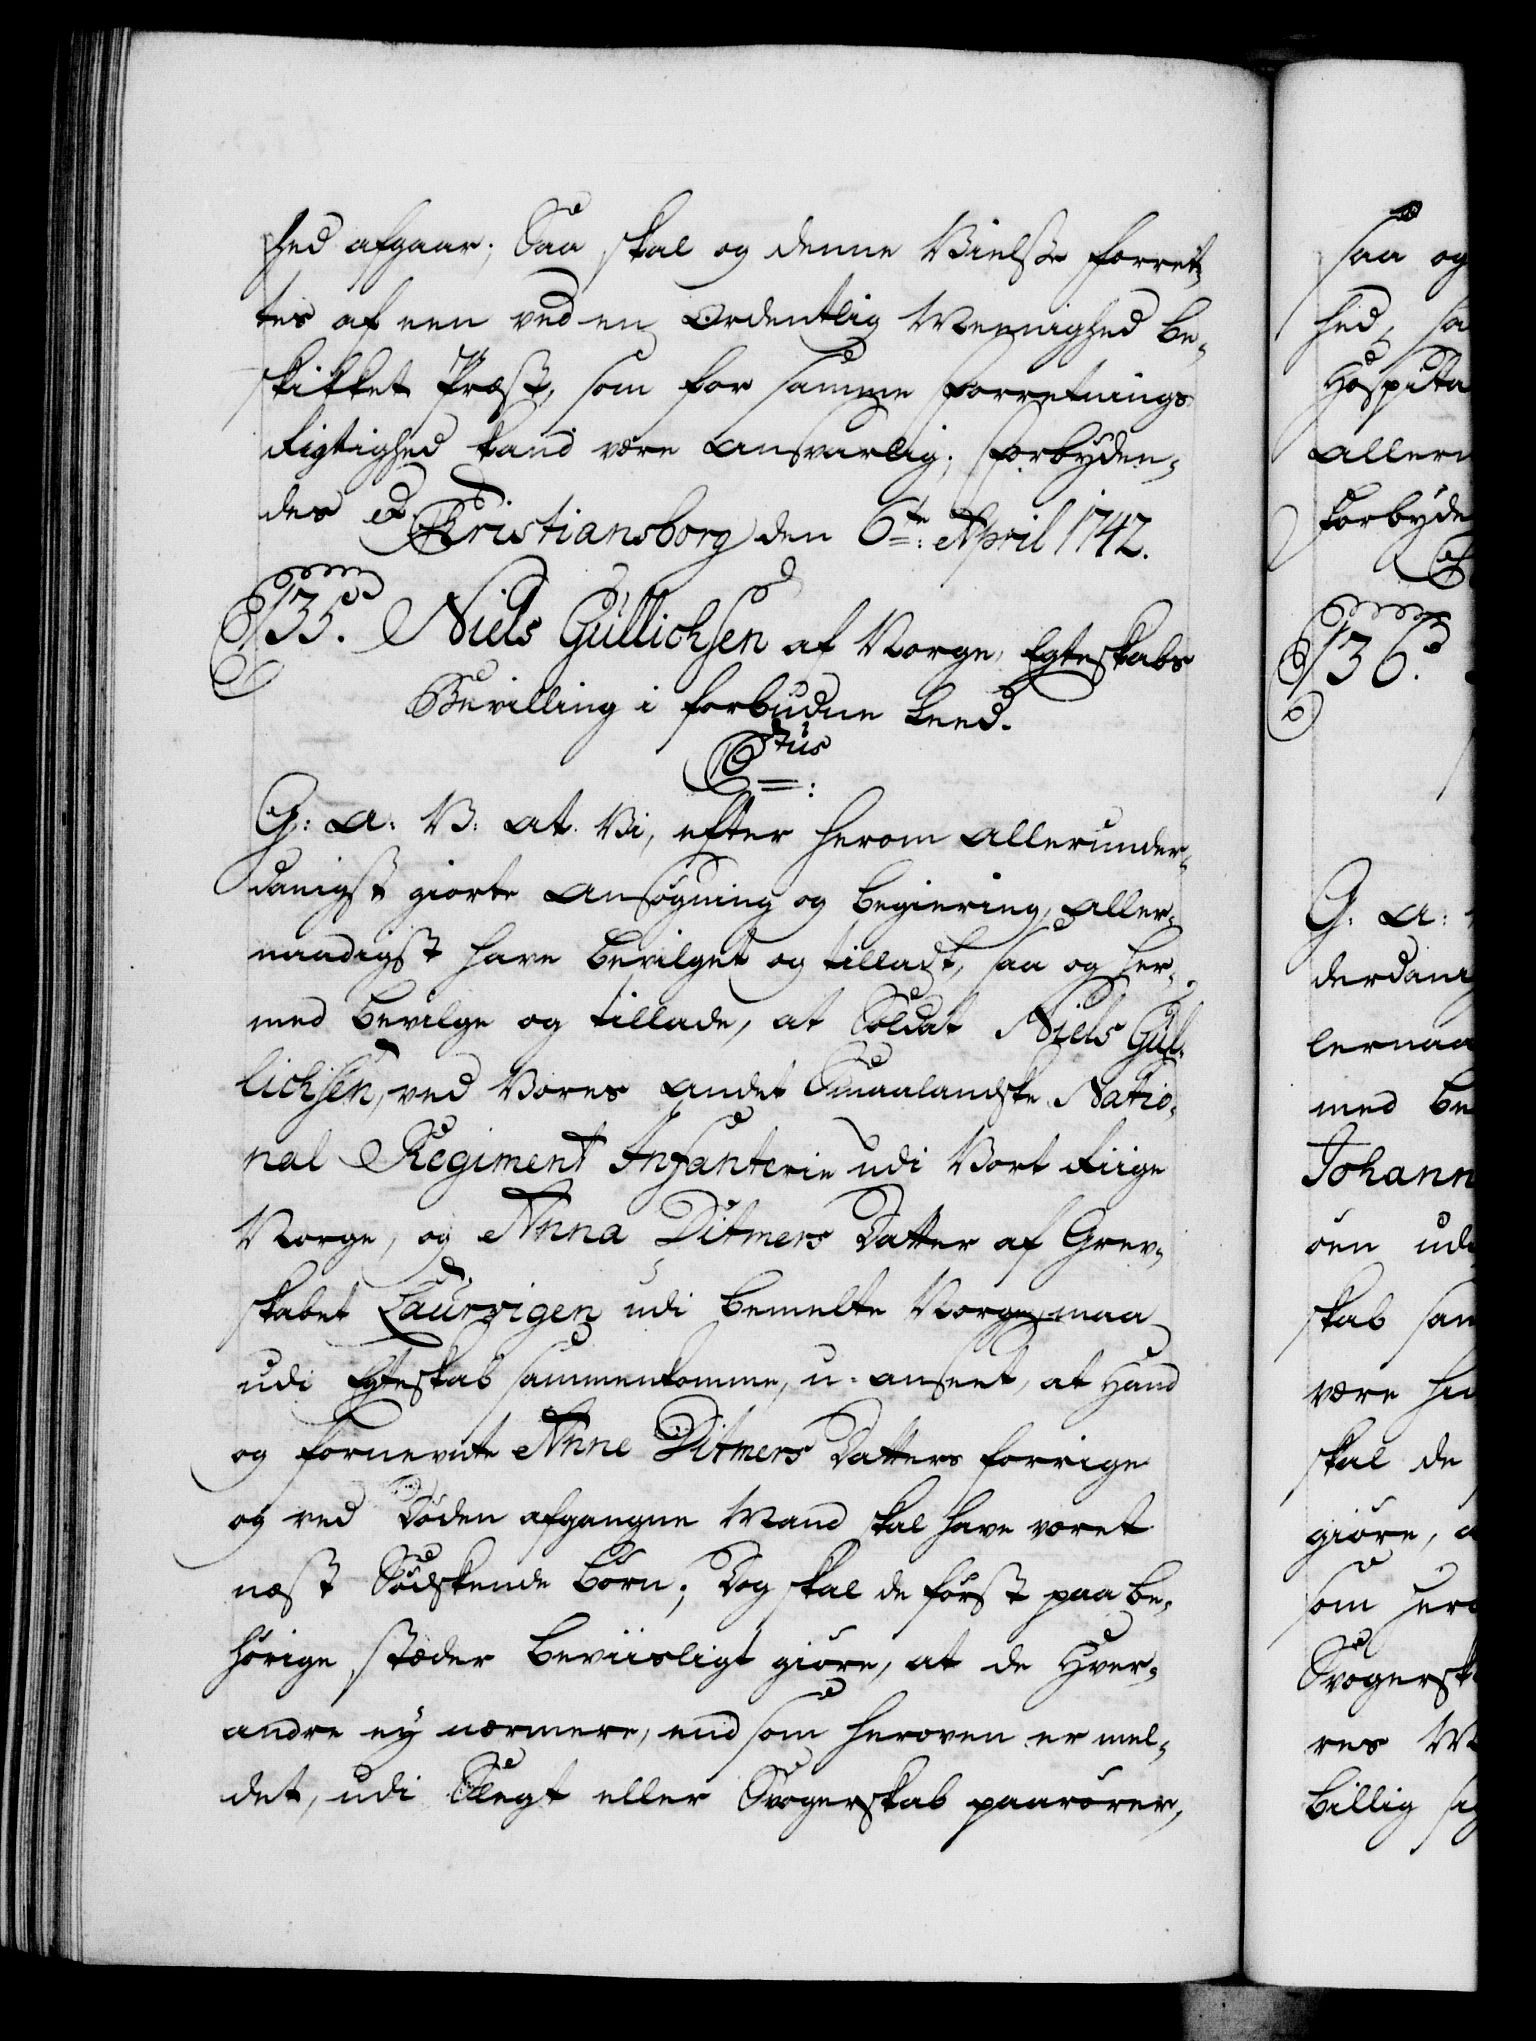 hed afgaar; Saa skal og denne Vielse forret-
tes af een ved en Ordentlig Meenighed be-
skikket Præst, som for samme Forretnings
Rigtighed kand være ansvarlig; Forbyden-
des &c. Christiansborg den 6te: April 1742.
135. Niels Gullichsen af Norge, Egteskabs
Bevilling i forbudne Leed.
C tus:
G: A: V: at Vi, efter herom allerunder-
danigst giorte Ansøgning og Begiering, aller-
naadigst have bevilget og tilladt, saa og her-
med bevilge og tillade, at Soldat Niels Gul-
lichsen, ved Vores andet Smaalandske Natio-
nal Regiment Infanterie udi Vort Riige
Norge, og Anna Ditmers Datter af Grev-
skabet Laurvigen udi bemelte Norge, maa
udi Egteskab sammenkomme, u-anseet, at Hand
og fornevnte Anne Ditmers Datters forrige
og ved Døden afgangne Mand skal have været
næst Sødskende Børn; Dog skal de først paa be-
hørige stæder beviisligt giøre, at de Hver-
andre ey nærmere, end som heroven er mel-
det, udi Slegt eller Svogerskab paarører,
saa og
hed, sa
Hospita
allern
Forbyde
136.
G: A:
derdani
lernaa
med be
Johann
øen udi
skab sam
være hi
skal de
giøre, a
som hero
Svogersk
res M
billig si